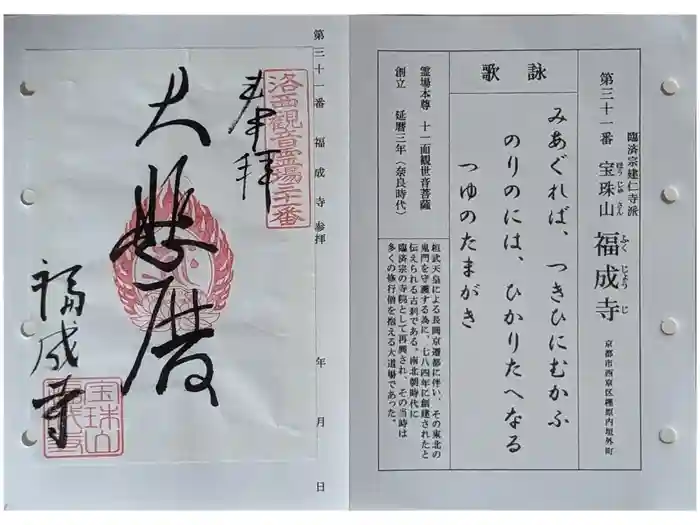 臨済宗建仁寺派
第三十一番 宝珠山 福成寺
ほうじゅさん
ふくじょうじ
京都市西京区樫原内垣外町
詠歌
みあぐれば、つきひにむかふ
のりのには、ひかりたへなる
つゆのたまがき
霊場本尊 十一面観世音菩薩
創立 延暦三年（奈良時代）
桓武天皇による長岡京遷都に伴い、その東北の
鬼門を守護する為に、七八四年に創建されたと
伝えられる古刹である。南北朝時代に
臨済宗の寺院として再興され、その当時は
多くの修行僧を抱える大道場であった。
第三十一番 福成寺参拝 年 月 日
洛西観音霊場三十一番
奉拝
大悲
福成寺
宝珠山